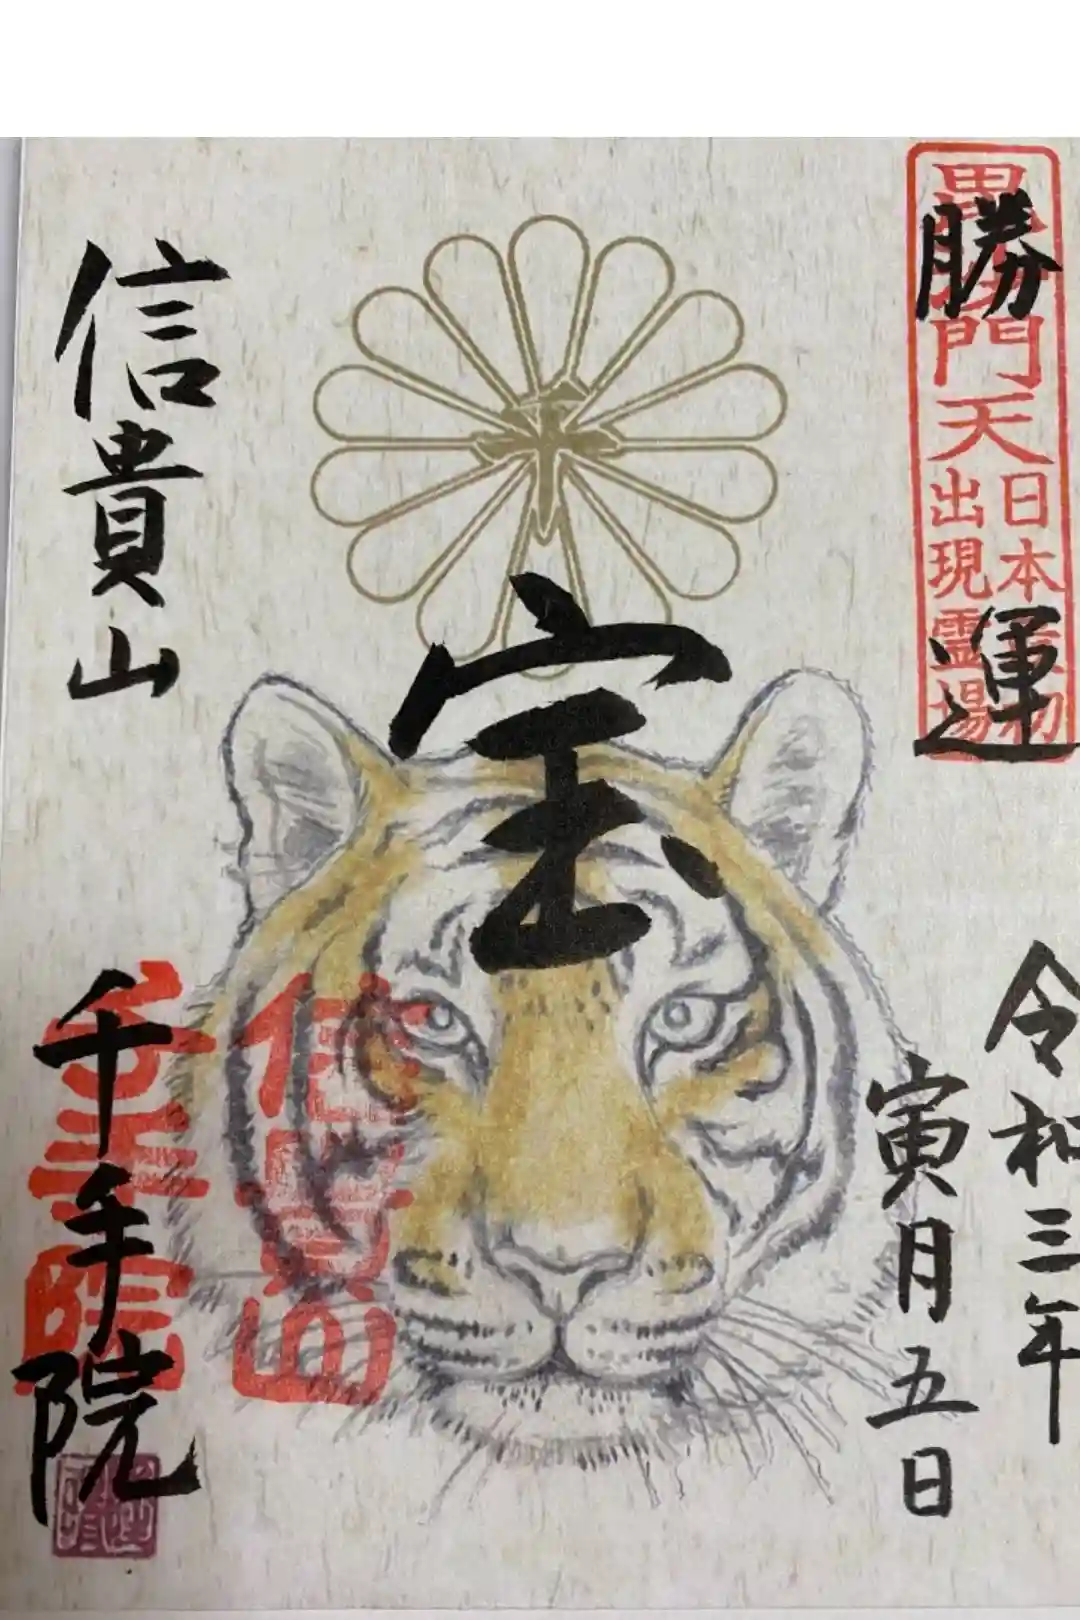 勝運
毘沙門天
日本最初
出現霊場
令和三年
寅月五日
宝
千
信貴山
千手院
信貴山
千手院